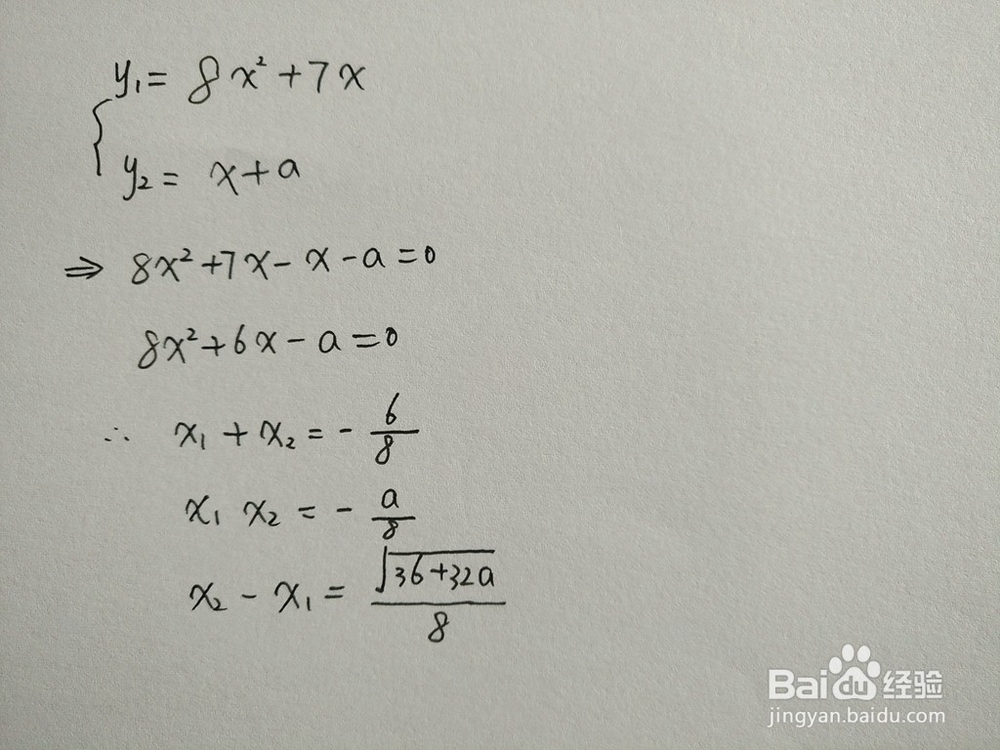 y₁ = 8x² + 7x
y₂ = x + a
⇒ 8x² + 7x - x - a = 0
8x² + 6x - a = 0
∴ x₁ + x₂ = - 6/8
x₁ x₂ = - a/8
x₂ - x₁ = √(36+32a)/8
Baidu 经验
jingyan.baidu.com